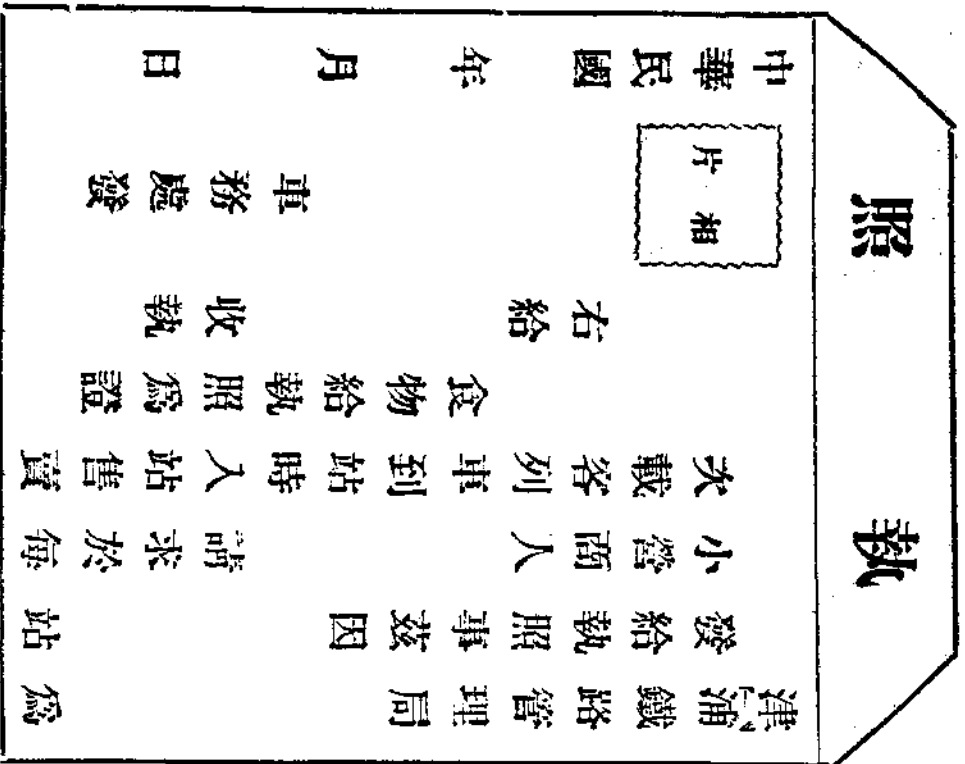 執照
津浦鐵路管理局　爲
發給執照事茲因　站
小營商人　請求於每
次載客列車到站時入站售賣
食物給執照爲證
右給　收執
相片
車務處發
中華民國　年　月　日